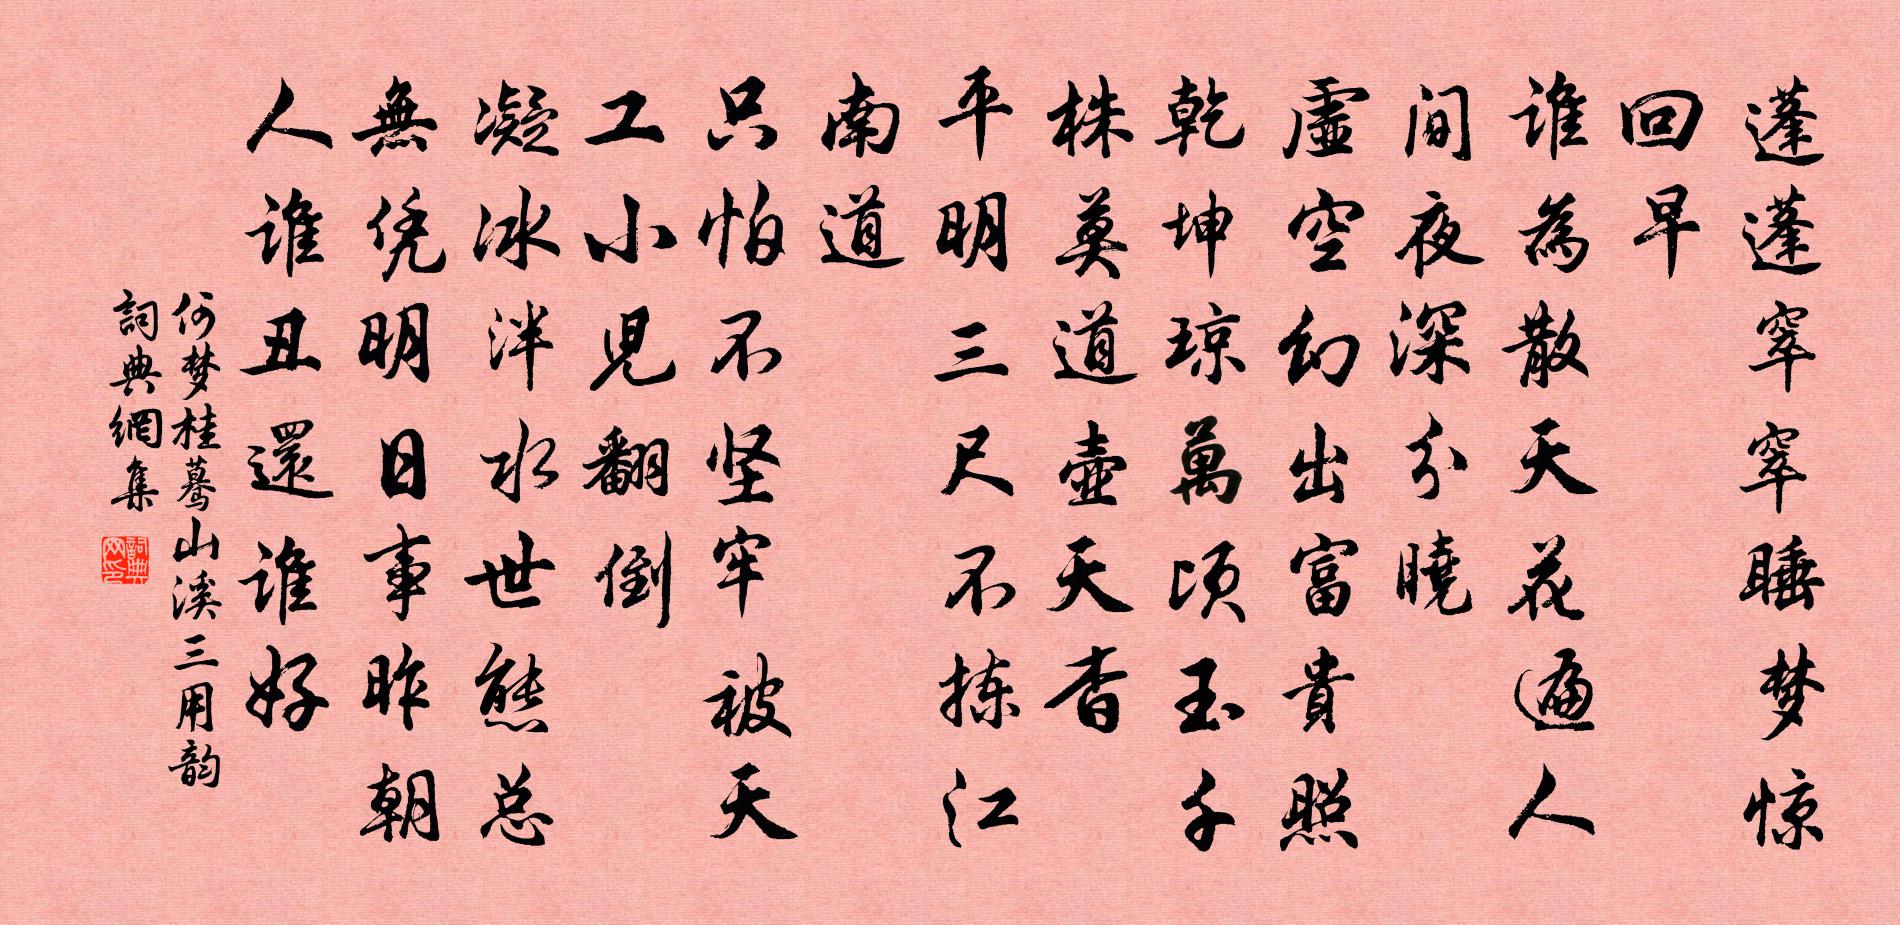 蓬蓬窣窣睡梦惊
回早
谁為散天花遍人
间夜深分曉
虛空幻出富貴照
乾坤琼萬顷玉千
株莫道壺天杳
平明三尺不拣江
南道
只怕不坚牢被天
工小児翻倒
凝冰泮水世態总
無凭明日事昨朝
人谁丑還谁好
何梦桂蓦山溪三用韵
詞典網集
詞典網印